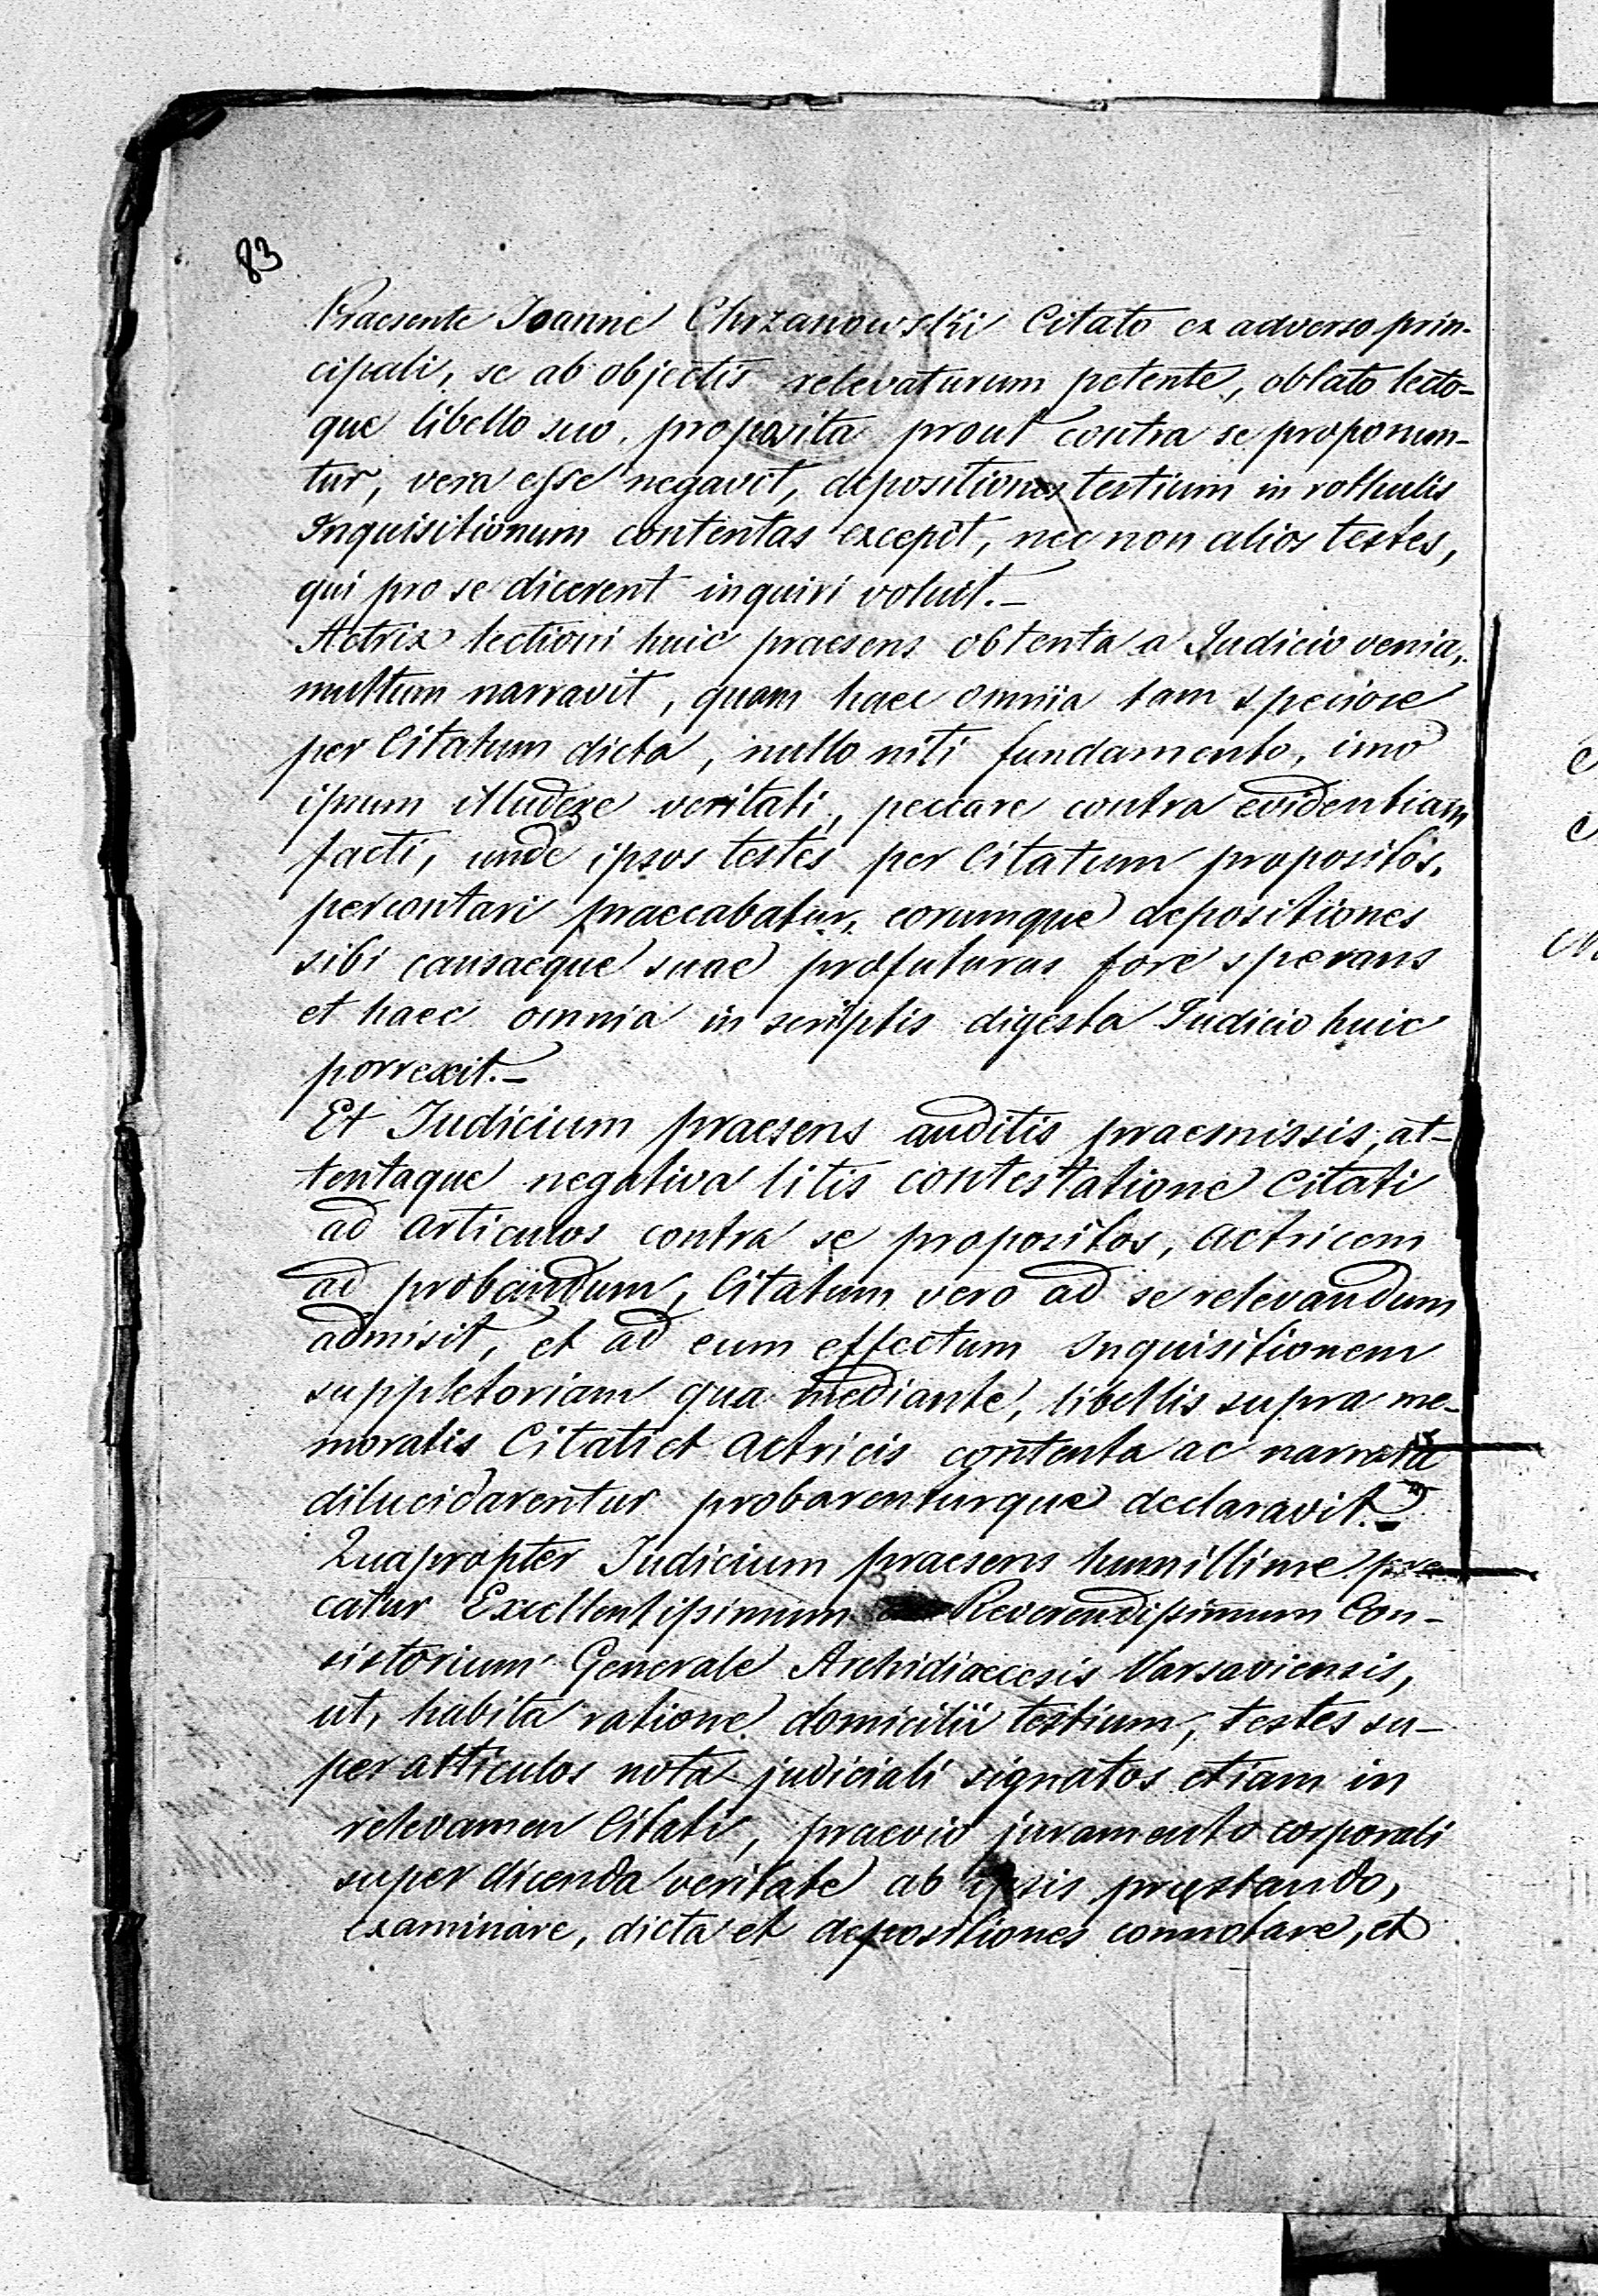 83
Praesente Joanne Chrzanowski Citato ex adverso prin-
cipali, se ab objectis relevaturum petente, oblato lecto-
que libello suo, proposita prout contra se proponun-
tur, vera esse negavit, depositiones testium in rothulis
Inquisitionum contentas excepit, nec non alios testes,
qui pro se dicerent inquiri voluit.–
Actrix lectioni huic praesens obtenta a Judicio venia,
multum narravit, quam haec omnia tam speciose
per Citatum dicta, nullo niti fundamento, imo
ipsum illudere veritati, peccare contra evidentiam
facti, unde ipsos testes per Citatum propositos,
percontari praecabatur, eorumque depositiones
sibi causaeque suae profuturas fore sperans
et haec omnia in scriptis digesta Judicio huic
porrexit.–
Et Judicium praesens auditis praemissis, at-
tentaque negativa litis contestatione Citati
ad articulos contra se propositos, actricem
ad probandum, Citatum vero ad se relevandum
admisit, et ad eum effectum Inquisitionem
suppletoriam qua mediante, libellis supra me-
moratis Citati et actricis contenta ac narrata
dilucidarentur probarenturque declaravit.–
Quapropter Judicium praesens humillime pre-
catur Excellentissimum Reverendissimum Con-
sistorium Generale Archidiaecesis Varsaviensis,
ut, habita ratione domicilii testium, testes su-
per articulos nota judiciali signatos etiam in
relevamen Citati, praevio juramento corporali
super dicenda veritate ab ipsis praestando,
examinare, dicta et depositiones connotare, et